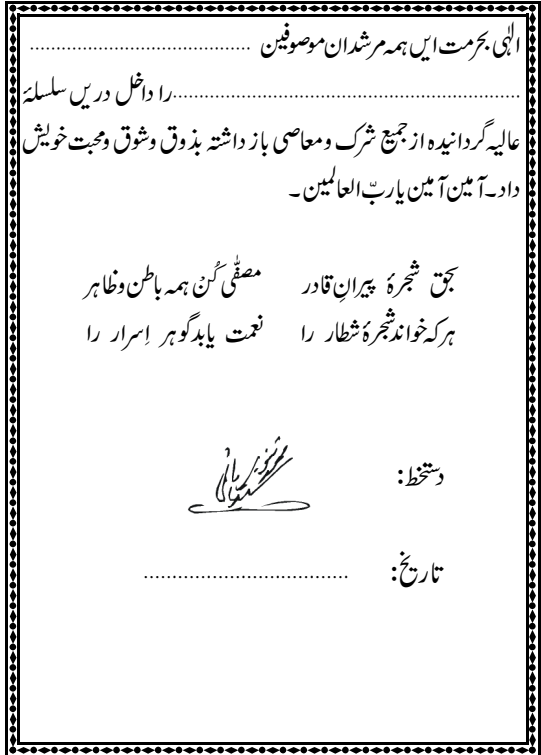 الٰہی بحرمت ایں ہمہ مرشدان موصوفین ..........................................
..................................................................را داخل دریں سلسلۂ
عالیہ گردانیدہ از جمیع شرک و معاصی باز داشتہ بذوق وشوق ومحبت خویش
داد۔آمین آمین یا ربّ العالمین ۔
بحق شجرۂ پیرانِ قادر مصفّٰی کُنْ ہمہ باطن وظاہر
ہرکہ خواند شجرۂ شطار را نعمت یابد گوہر اِسرار را
دستخط:
تاریخ: ....................................